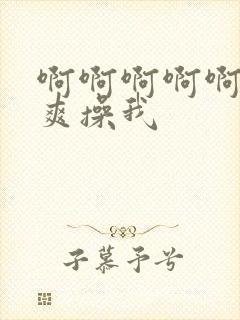 啊啊啊啊啊
爽操我
子慕予兮